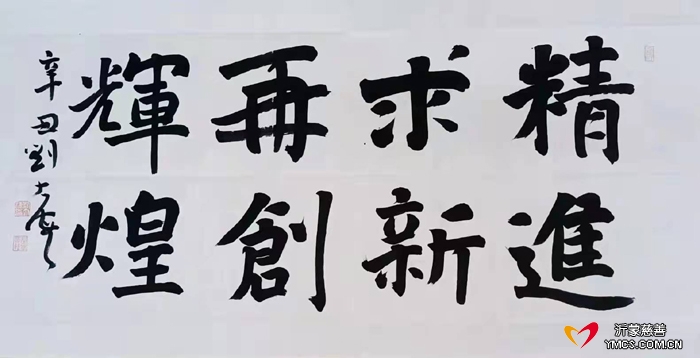 精進
求新
再創
輝煌
辛丑劉大
沂蒙慈善
YMCS.COM.CN